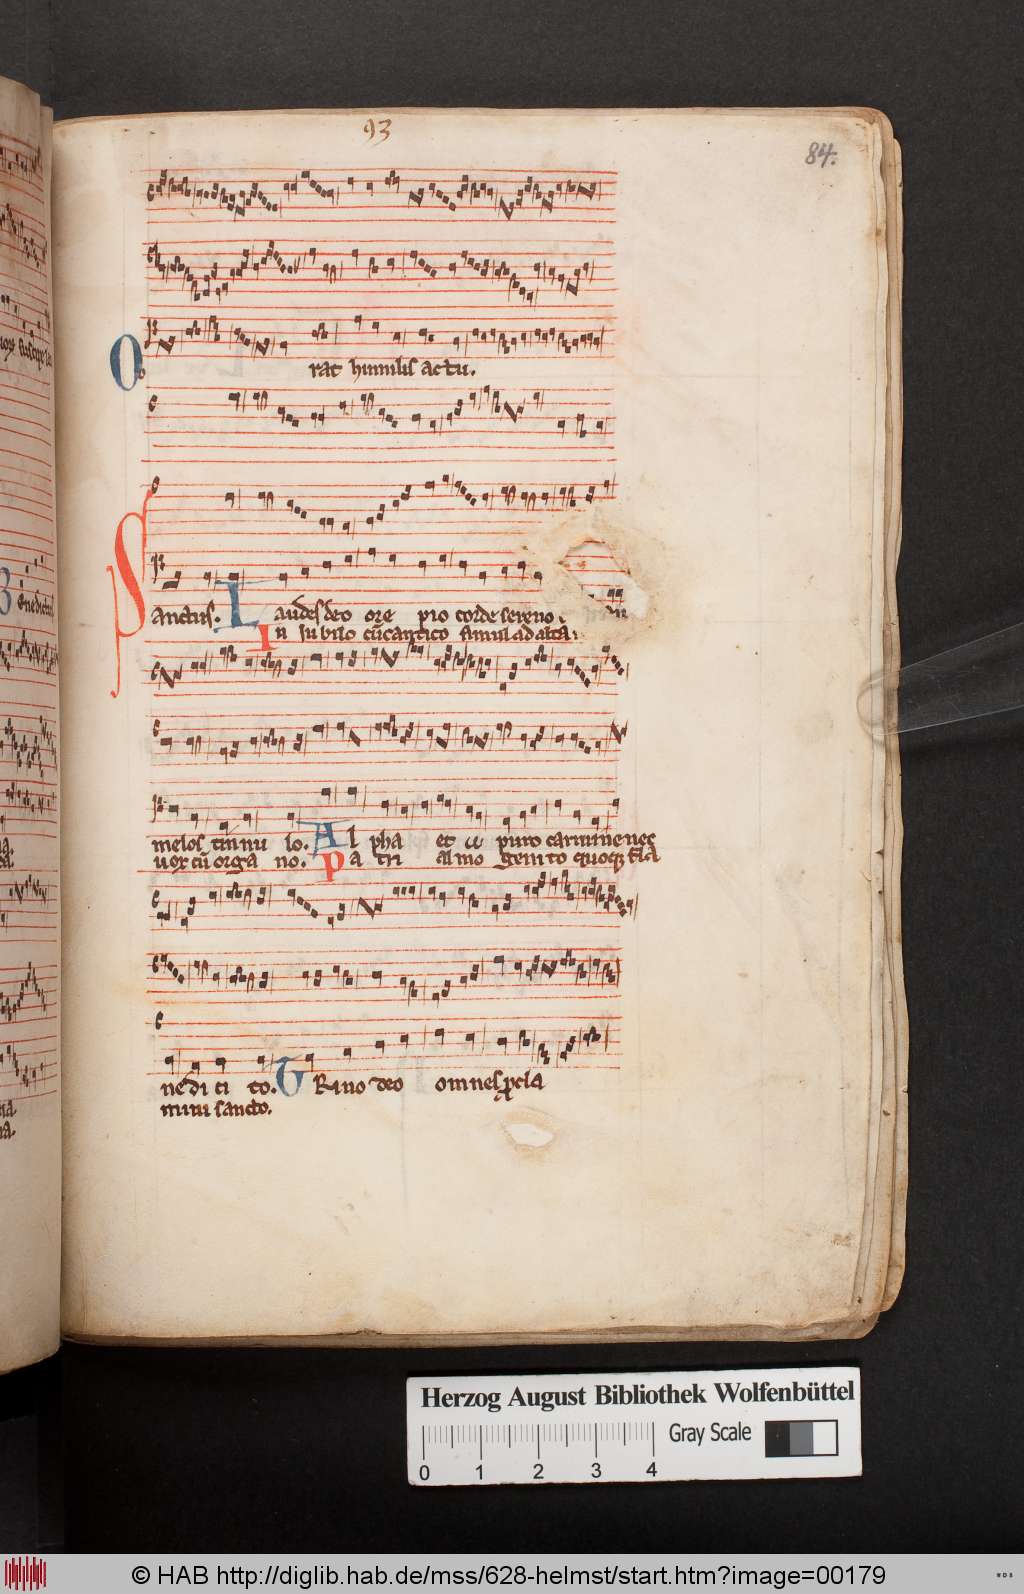 93
84.
O
rat humilis actu.
Sanctus. Laudes deo ore pio corde sereno
In iubilo cū cantico simul ad alta
melos tinnu lo. Al pha et ω puro carmine nec
uox cū orga no. Pa tri almo genito quoqꝫ fla
ne di ci to. Trino deo omnes ꝓcla
mini sancto.
Benedictus
Herzog August Bibliothek Wolfenbüttel
Gray Scale
0 1 2 3 4
© HAB http://diglib.hab.de/mss/628-helmst/start.htm?image=00179